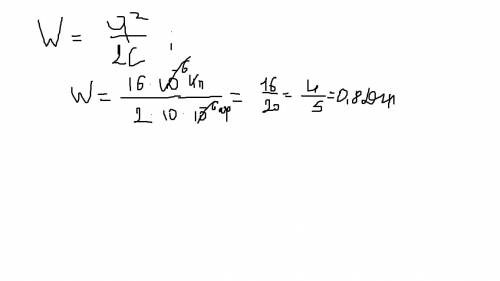 W = q²/2C ;
W = 16 · 10⁻⁶ Кл / 2 · 10 · 10⁻⁶ мкф = 16/20 = 4/5 = 0,8 Дж